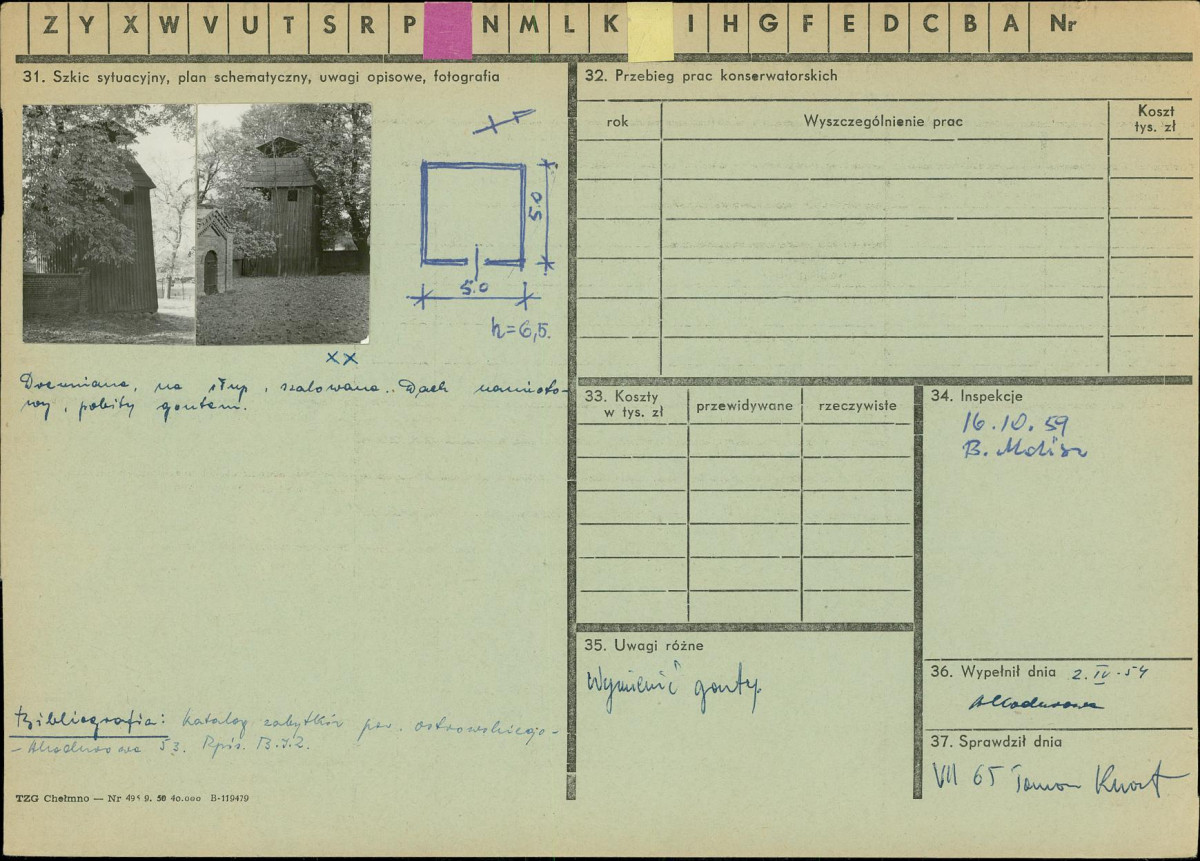 Z Y X W V U T S R P N M L K I H G F E D C B A Nr
31. Szkic sytuacyjny, plan schematyczny, uwagi opisowe, fotografia
5.0
5.0
h=6,5.
xx
Drewniana, na słup, szalowana. Dach namioto-
wy, pobity gontem.
Bibliografia: Katalog zabytków pow. ostrowskiego -
53. Rpis. B.I.Z.
TZG Chełmno — Nr 49 9. 50 40.000 B-119479
32. Przebieg prac konserwatorskich
rok Wyszczególnienie prac Koszt
tys. zł
33. Koszty
w tys. zł przewidywane rzeczywiste
34. Inspekcje
16.10.59
B.
35. Uwagi różne
Wymienić gonty.
36. Wypełnił dnia 2.IV.54
37. Sprawdził dnia
VII 65